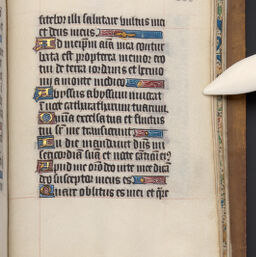 fitebor illi salutare vultus mei
et deus meus.
Ad meipm aīa mea contur
bata est propterea memor ero
tui de terra iordanis et hermo
nij a monte modico
Abyssus abyssum invocat
in voce cataractarum tuarum.
Omīa excelsa tua et fluctus
tui sr̄ me transierunt
In die mandavit dn̄s mi
sericordiā suā et nocte canticū eiꝰ
Apud me orō deo vite mee dicā
deo susceptor meus es
Quare oblitus es mei et qr̄e